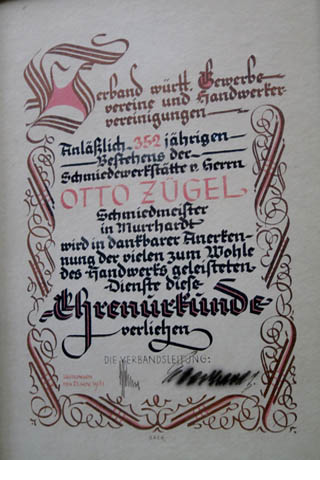 Verband württ. Gewerbe-
vereine und Handwerker-
vereinigungen
Anläßlich 352 jährigen
Bestehens der
Schmiedewerkstätte v. Herrn
OTTO ZÜGEL
Schmiedmeister
in Murrhardt
wird in dankbarer Anerken-
nung der vielen zum Wohle
des Handwerks geleisteten
Dienste diese
Ehrenurkunde
verliehen
DIE VERBANDSLEITUNG: